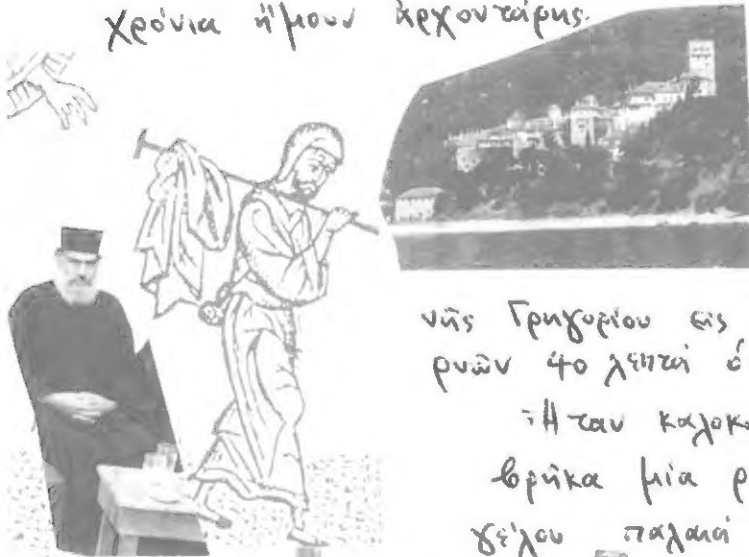 χρόνια ἤμουν ἀρχοντάρης.
νῆς Γρηγορίου εἰς
ρυῶν 40 λεπτά ὁ
Ἦταν καλοκα
βρῆκα μία ρ
γέλου παλαιά